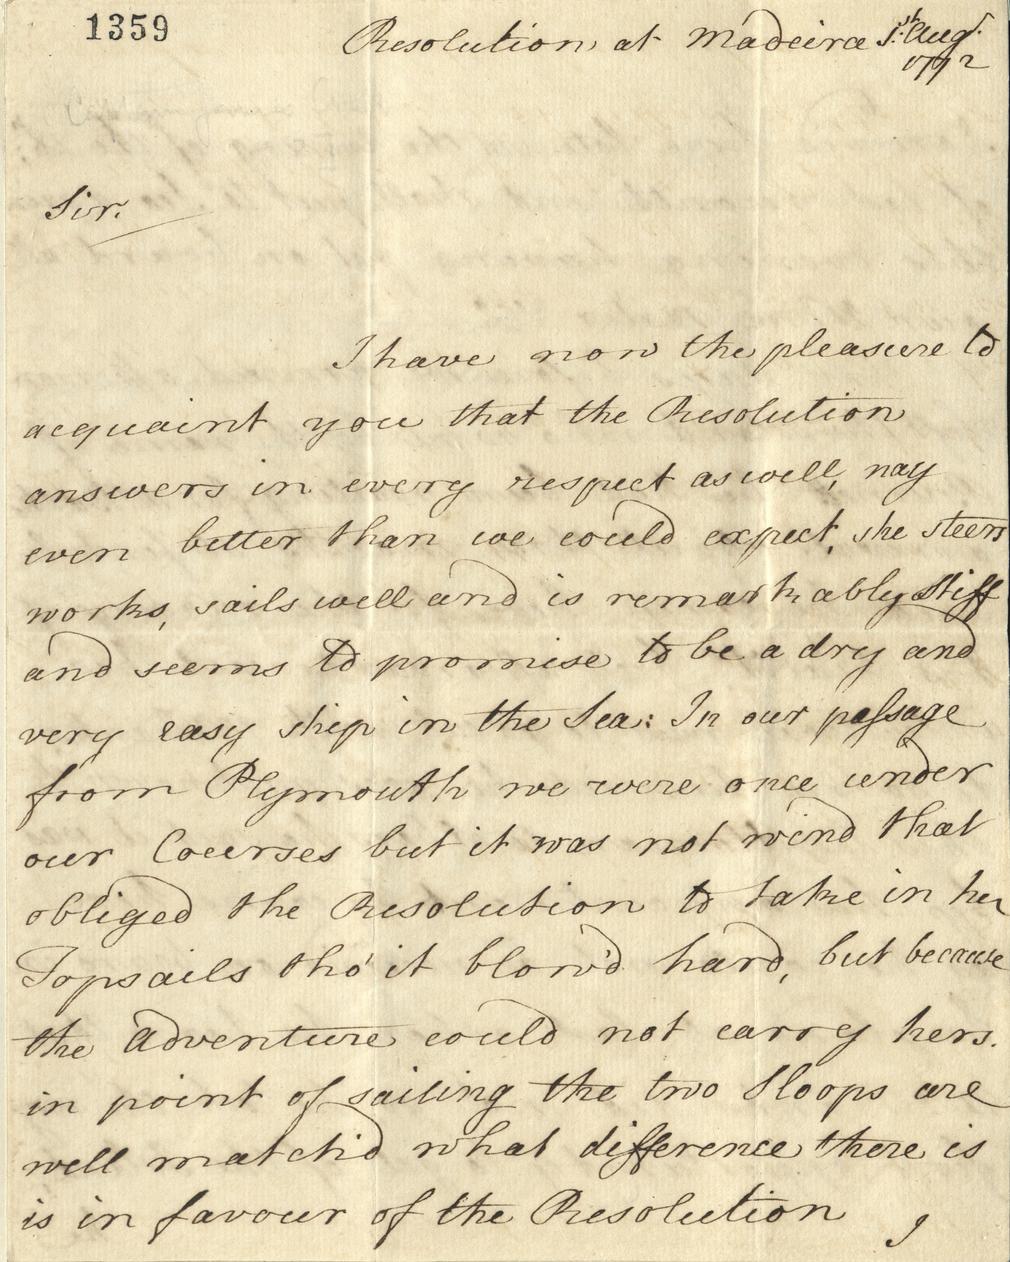 1359
Resolution at Madeira 1st Augt.
1772
Sir.
I have now the pleasure to
acquaint you that the Resolution
answers in every respect as well, nay
even better than we could expect, she steers
works, sails well and is remarkably stiff
and seems to promise to be a dry and
very easy ship in the Sea: In our paſsage
from Plymouth we were once under
our Courses but it was not wind that
obliged the Resolution to take in her
Topsails tho' it blow'd hard, but because
the Adventure could not carry hers.
in point of sailing the two Sloops are
well match'd what difference there is
is in favour of the Resolution
I